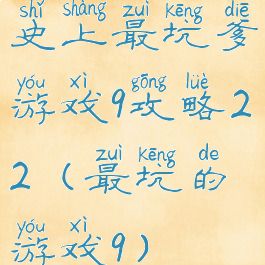 shǐ shàng zuì kēng diē
史上最坑爹
yóu xì gōng lüè
游戏9攻略2
zuì kēng de
2(最坑的
yóu xì
游戏9)